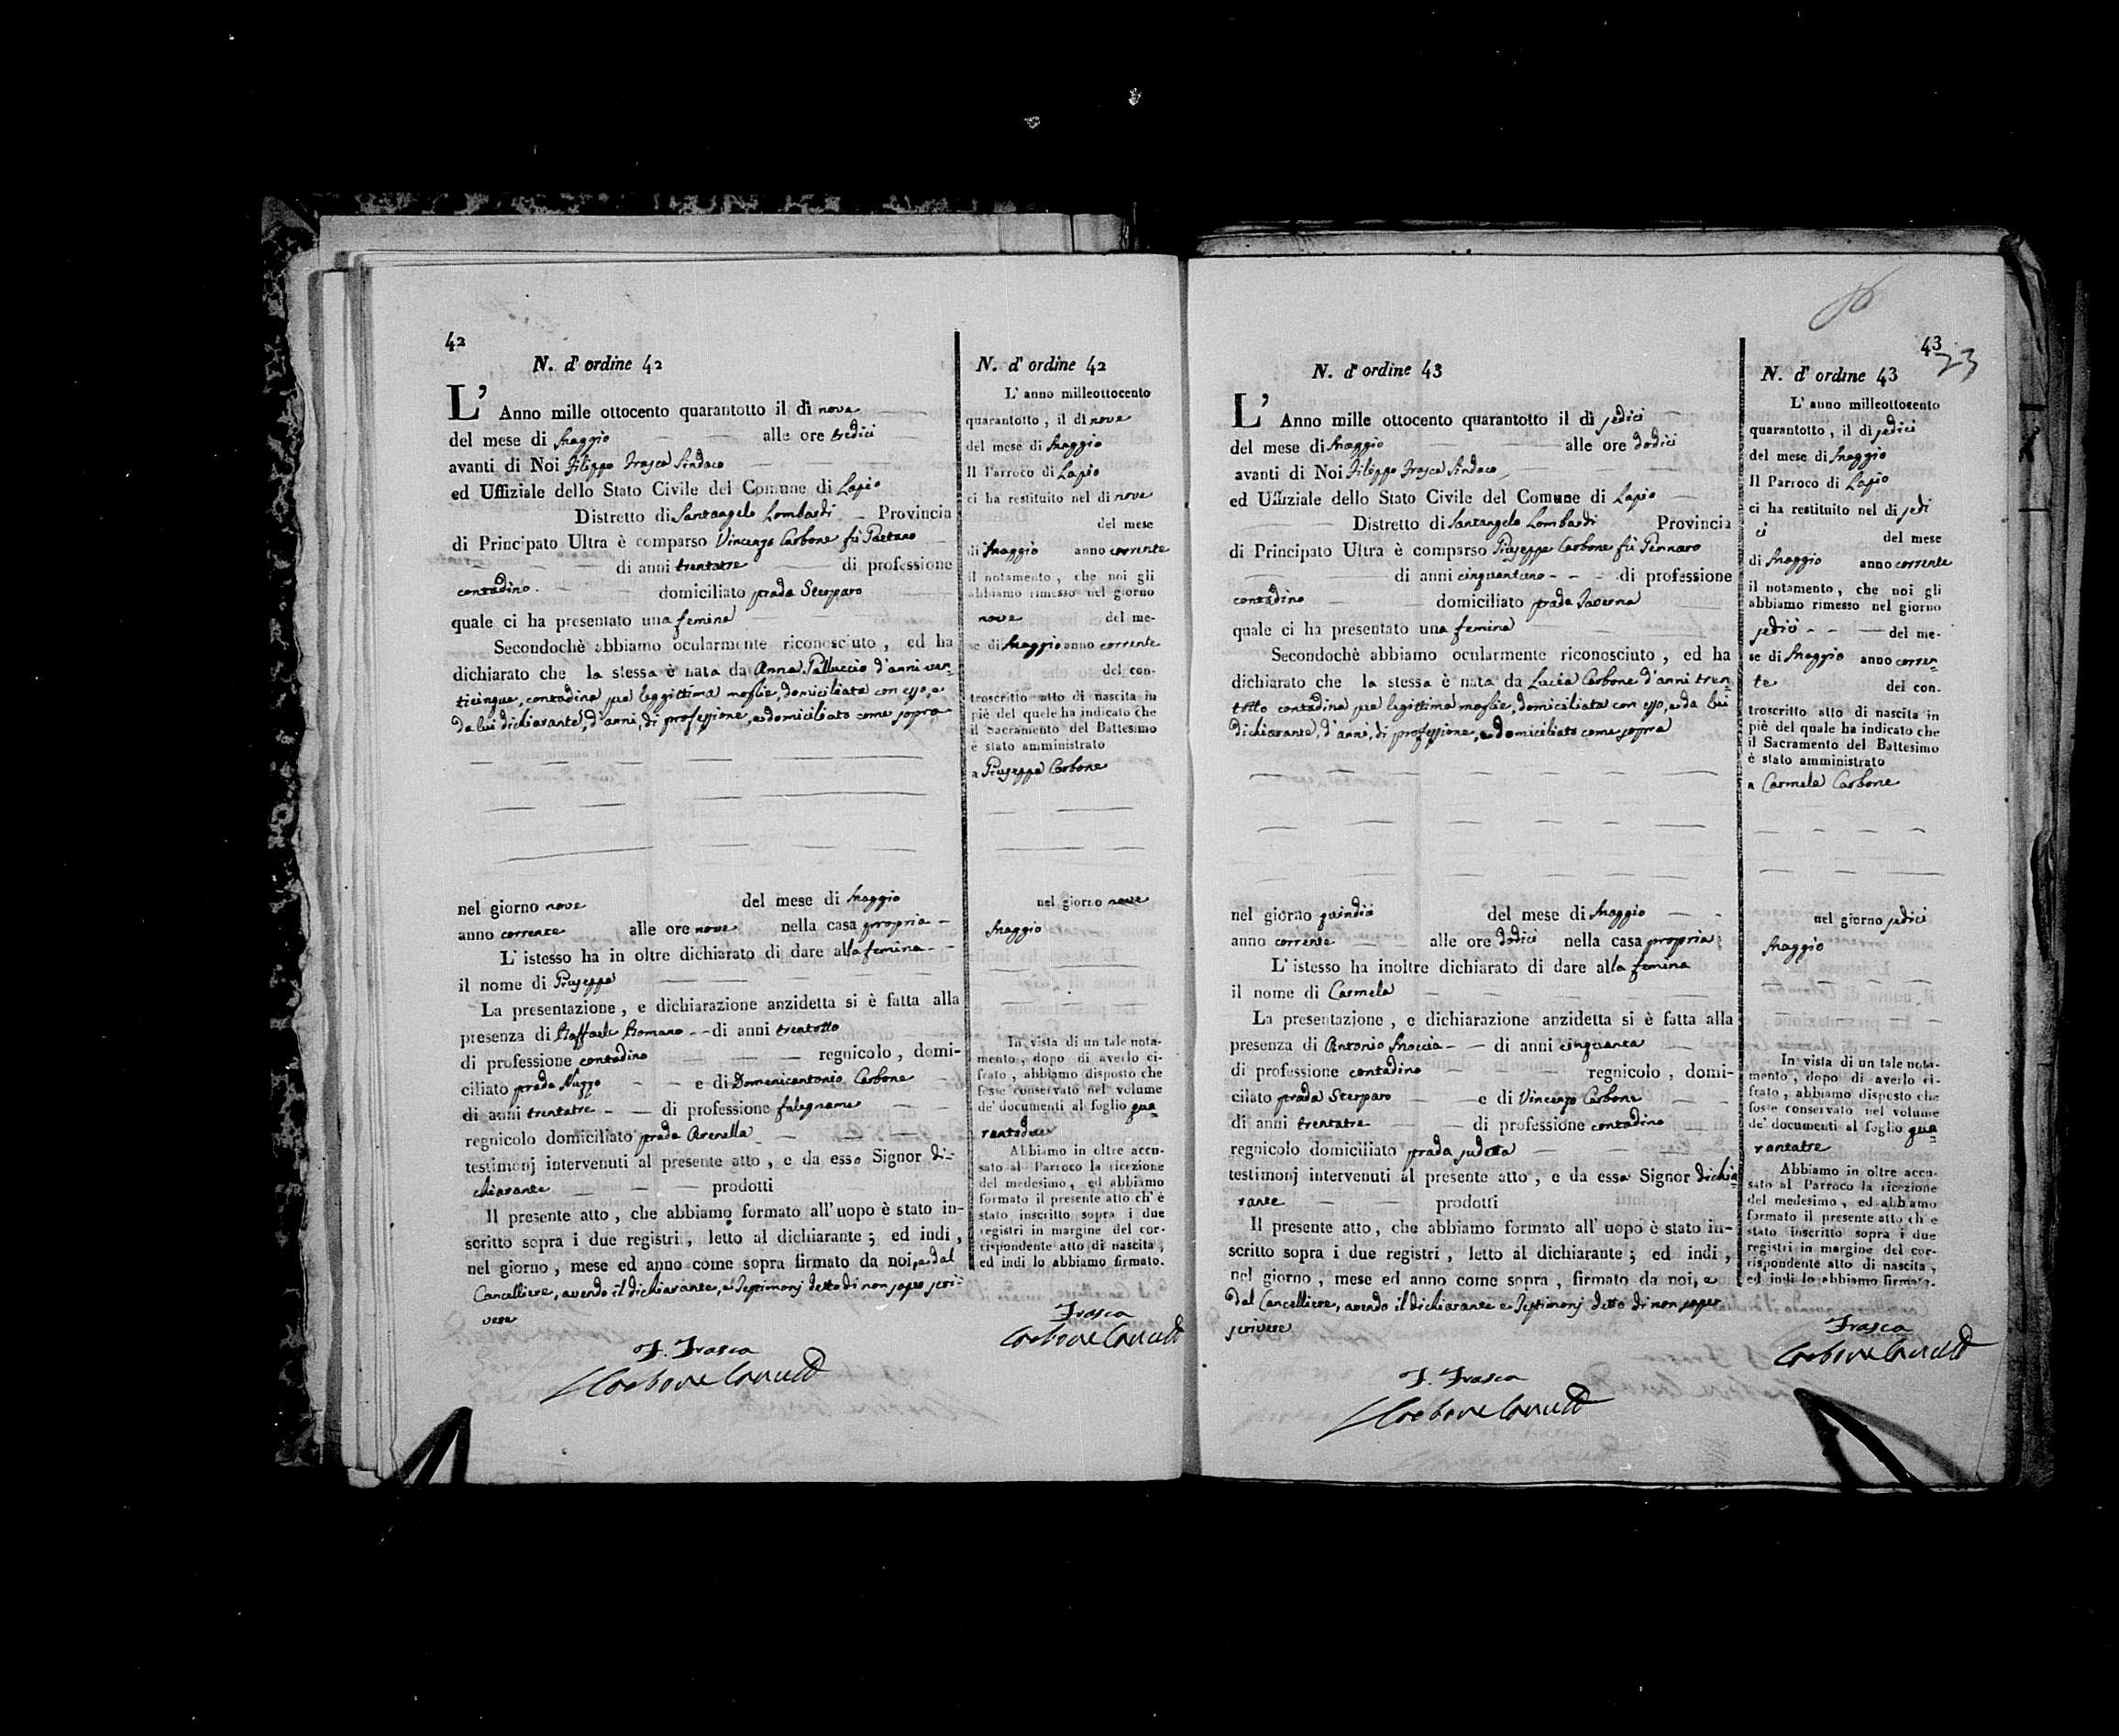 42
N. d' ordine 42
L' Anno mille ottocento quarantotto il dì nove
del mese di Maggio alle ore tredici
avanti di Noi Filippo Frasca Sindaco
ed Uffiziale dello Stato Civile del Comune di Lapio
Distretto di Santangelo Lombardi Provincia
di Principato Ultra è comparso Vincenzo Carbone fù Gaetano
di anni trentatre di professione
contadino domiciliato strada Sterparo
quale ci ha presentato una femina
Secondochè abbiamo ocularmente riconosciuto, ed ha
dichiarato che la stessa è nata da Anna Palluccio d'anni ven-
ticinque, contadina sua leggittima moglie, domiciliata con esso, e
da lui dichiarante, d'anni, di professione, e domiciliato come sopra
nel giorno nove del mese di Maggio
anno corrente alle ore nove nella casa propria
L' istesso ha in oltre dichiarato di dare alla femina
il nome di Giuseppa
La presentazione, e dichiarazione anzidetta si è fatta alla
presenza di Raffaele Romano di anni trentotto
di professione contadino regnicolo, domi-
ciliato strada Nuzzo e di Domenicantonio Carbone
di anni trentatre di professione falegname
regnicolo domiciliato strada Arenella
testimonj intervenuti al presente atto, e da esso Signor di-
chiarante prodotti
Il presente atto, che abbiamo formato all'uopo è stato in-
scritto sopra i due registri, letto al dichiarante; ed indi,
nel giorno, mese ed anno come sopra firmato da noi, e dal
Cancelliere, avendo il dichiarante, e Testimonj detto di non saper scri-
vere
F. Frasca
Carbone
N. d' ordine 42
L' anno milleottocento
quarantotto, il dì nove
del mese di Maggio
Il Parroco di Lapio
ci ha restituito nel dì nove
del mese
di Maggio anno corrente
il notamento, che noi gli
abbiamo rimesso nel giorno
nove del me-
se di Maggio anno corrente
del con-
troscritto atto di nascita in
piè del quale ha indicato che
il Sacramento del Battesimo
è stato amministrato
a Giuseppa Carbone
nel giorno nove
Maggio
In vista di un tale nota-
mento, dopo di averlo ci-
frato, abbiamo disposto che
fosse conservato nel volume
de' documenti al foglio qua
rantadue
Abbiamo in oltre accu-
sato al Parroco la ricezione
del medesimo, ed abbiamo
formato il presente atto ch' è
stato inscritto sopra i due
registri in margine del cor-
rispondente atto di nascita,
ed indi lo abbiamo firmato.
Frasca
Carbone
43
23
N. d' ordine 43
L' Anno mille ottocento quarantotto il dì sedici
del mese di Maggio alle ore dodici
avanti di Noi Filippo Frasca Sindaco
ed Uffiziale dello Stato Civile del Comune di Lapio
Distretto di Santangelo Lombardi Provincia
di Principato Ultra è comparso Giuseppe Carbone fù Gennaro
di anni cinquantuno di professione
contadino domiciliato strada Taverna
quale ci ha presentato una femina
Secondochè abbiamo ocularmente riconosciuto, ed ha
dichiarato che la stessa è nata da Lucia Carbone d'anni tren
totto contadina sua legittima moglie, domiciliata con esso, e da lui
dichiarante, d'anni, di professione, e domiciliato come sopra
nel giorno quindici del mese di Maggio
anno corrente alle ore dodici nella casa propria
L' istesso ha inoltre dichiarato di dare alla femina
il nome di Carmela
La presentazione, e dichiarazione anzidetta si è fatta alla
presenza di Antonio Moccia di anni cinquanta
di professione contadino regnicolo, domi-
cilato strada Sterparo e di Vincenzo Carbone
di anni trentatre di professione contadino
regnicolo domiciliato strada sudetta
testimonj intervenuti al presente atto, e da esso Signor dichia
rante prodotti
Il presente atto, che abbiamo formato all' uopo è stato in-
scritto sopra i due registri, letto al dichiarante; ed indi,
nel giorno, mese ed anno come sopra, firmato da noi, e
dal Cancelliere, avendo il dichiarante e Testimonj detto di non saper
scrivere
F. Frasca
Carbone
N. d' ordine 43
L' anno milleottocento
quarantotto, il dì sedici
del mese di Maggio
Il Parroco di Lapio
ci ha restituito nel dì sedi
ci del mese
di Maggio anno corrente
il notamento, che noi gli
abbiamo rimesso nel giorno
sedici del me-
se di Maggio anno corren
te del con-
troscritto atto di nascita in
piè del quale ha indicato che
il Sacramento del Battesimo
è stato amministrato
a Carmela Carbone
nel giorno sedici
Maggio
In vista di un tale nota-
mento, dopo di averlo ci-
frato, abbiamo disposto che
fosse conservato nel volume
de' documenti al foglio qua
rantatre
Abbiamo in oltre accu-
sato al Parroco la ricezione
del medesimo, ed abbiamo
formato il presente atto ch' è
stato inscritto sopra i due
registri in margine del cor-
rispondente atto di nascita,
ed indi lo abbiamo firmato.
Frasca
Carbone